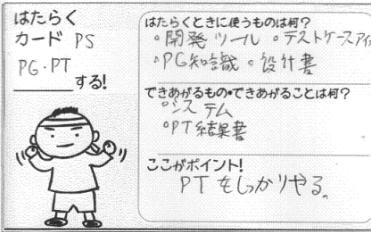 はたらく
カード PS
PG・PT
する!
はたらくときに使うものは何?
・開発ツール ・テストケース
・PG知識 ・設計書
できあがるもの・できあがることは何?
・システム
・PT結果書
ここがポイント!
PTをしっかりやる。